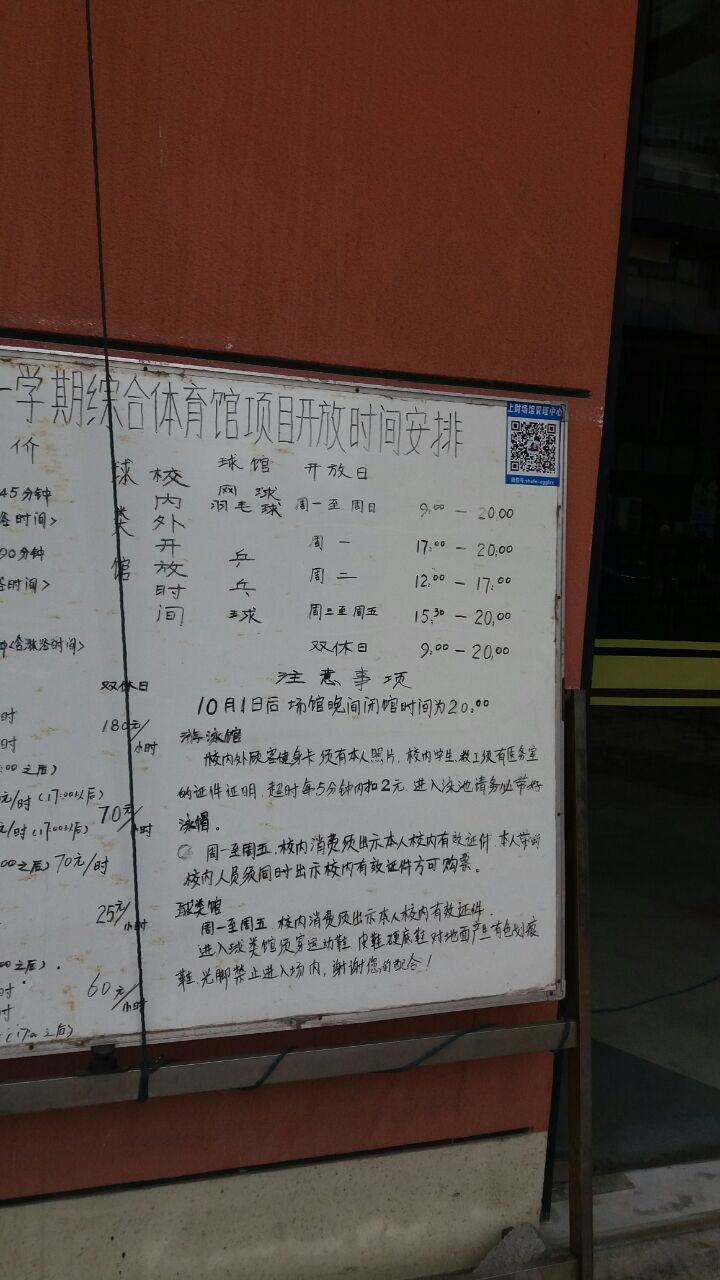 一学期综合体育馆项目开放时间安排
上财场馆管理中心
价
球类馆
校内外开放时间
球馆 开放日
网球
羽毛球 周一至周日 9:00 — 20:00
乒乓球
周一 17:00 — 20:00
周二 12:00 — 17:00
周三至周五 15:30 — 20:00
双休日 9:00 — 20:00
45分钟
浴时间>
90分钟
浴时间>
钟<含淋浴时间>
双休日
时
180元/小时
时
:00之后)
元/时(17:00以后)
70元/小时
元/时(17:00以后)
00之后)70元/时
25元/小时
00之后).
时
60元/小时
时
(17:00之后)
注意事项
10月1日后场馆晚间闭馆时间为20:00
游泳馆
校内外顾客健身卡须有本人照片,校内学生、教工须有医务室
的证件证明.超时每5分钟内扣2元.进入泳池请务必带好
泳帽。
周一至周五,校内消费须出示本人校内有效证件.本人带的
校内人员须同时出示校内有效证件方可购票。
球类馆
周一至周五,校内消费须出示本人校内有效证件.
进入球类馆须穿运动鞋,皮鞋、硬底鞋、对地面产生有色划痕
鞋、光脚禁止进入场内,谢谢您的配合!